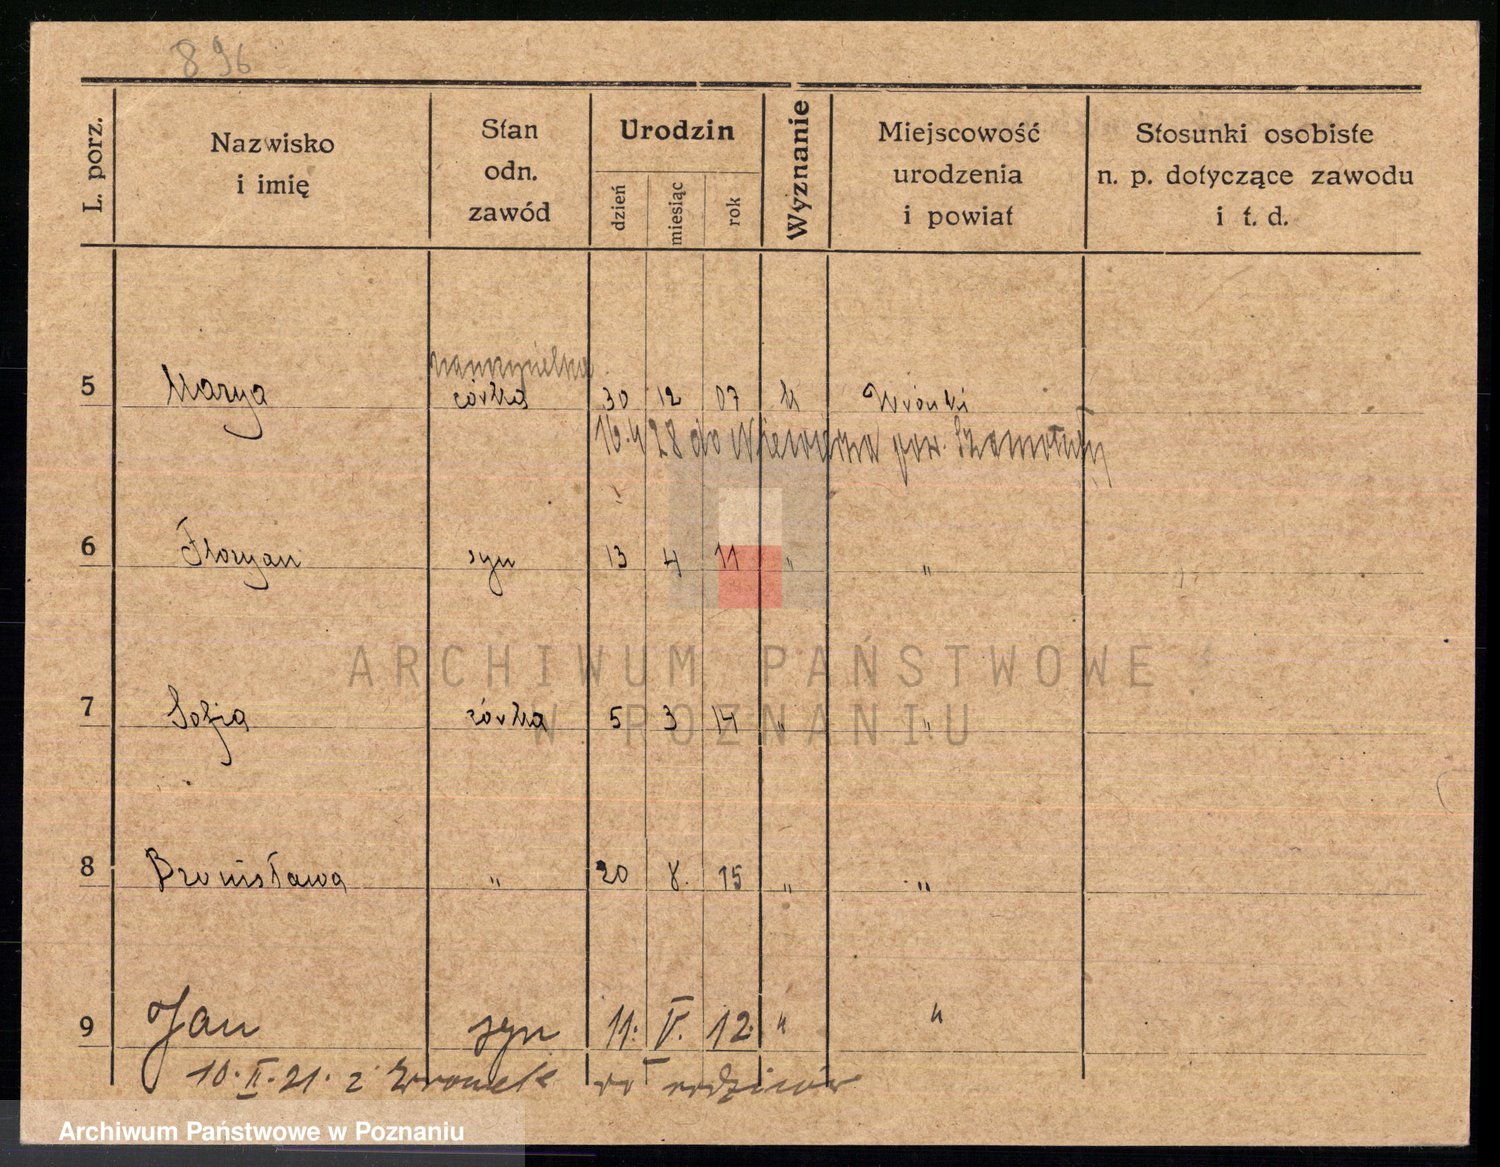 896
L. porz.
Nazwisko
i imię
Stan
odn.
zawód
Urodzin
dzień
miesiąc
rok
Wyznanie
Miejscowość
urodzenia
i powiat
Stosunki osobiste
n. p. dotyczące zawodu
i t. d.
nauczycielka
5 Marya córka 30 12 07 k Wronki
16.4 28 do pow. Szamotuły
6 Floryan syn 13 4 11 " "
7 Sofja córka 5 3 14 " "
8 Bronisława " 20 8. 15 " "
9 Jan syn 11. V. 12. " "
10.II.21. z Wronek do rodziców
ARCHIWUM PAŃSTWOWE
W POZNANIU
Archiwum Państwowe w Poznaniu